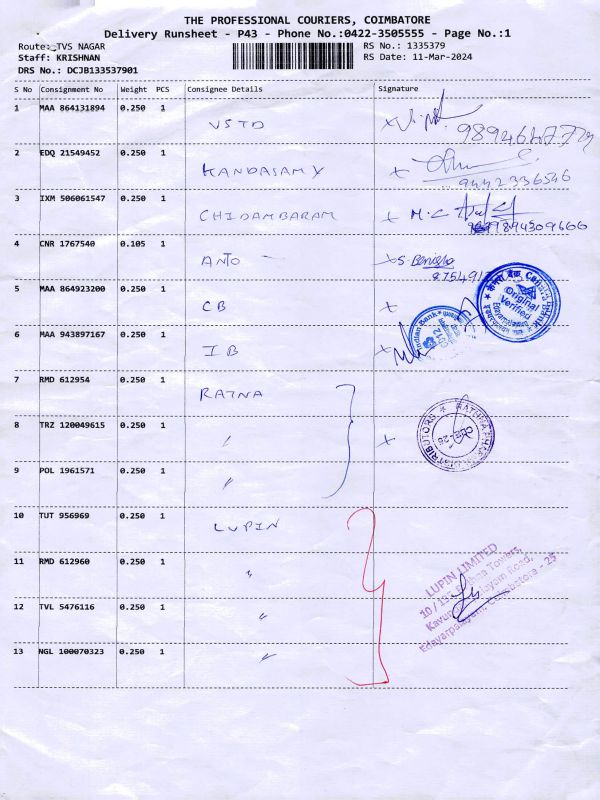 THE PROFESSIONAL COURIERS, COIMBATORE
Delivery Runsheet - P43 - Phone No.:0422-3505555 - Page No.:1
Route: TVS NAGAR
RS No.: 1335379
Staff: KRISHNAN
RS Date: 11-Mar-2024
DRS No.: DCJB133537901
S No Consignment No Weight PCS Consignee Details Signature
1 MAA 864131894 0.250 1 VSTD
2 EDQ 21549452 0.250 1 KANDASAMY
9442336546
3 IXM 506061547 0.250 1 CHIDAMBARAM M.C
9894309666
4 CNR 1767540 0.105 1 ANTO S. Benisha
5 MAA 864923200 0.250 1 CB
Canara Bank
Original
Verified
Edayarpalayam
6 MAA 943897167 0.250 1 IB
Indian Bank
7 RMD 612954 0.250 1 RATNA
8 TRZ 120049615 0.250 1 〃
9 POL 1961571 0.250 1 〃
10 TUT 956969 0.250 1 LUPIN
11 RMD 612960 0.250 1 〃
LUPIN LIMITED
Towers,
Road,
Edayarpalayam, Coimbatore - 25
12 TVL 5476116 0.250 1 〃
13 NGL 100070323 0.250 1 〃